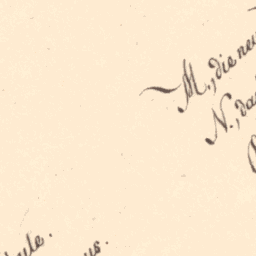 M., die neu
N., da
ule.
us.